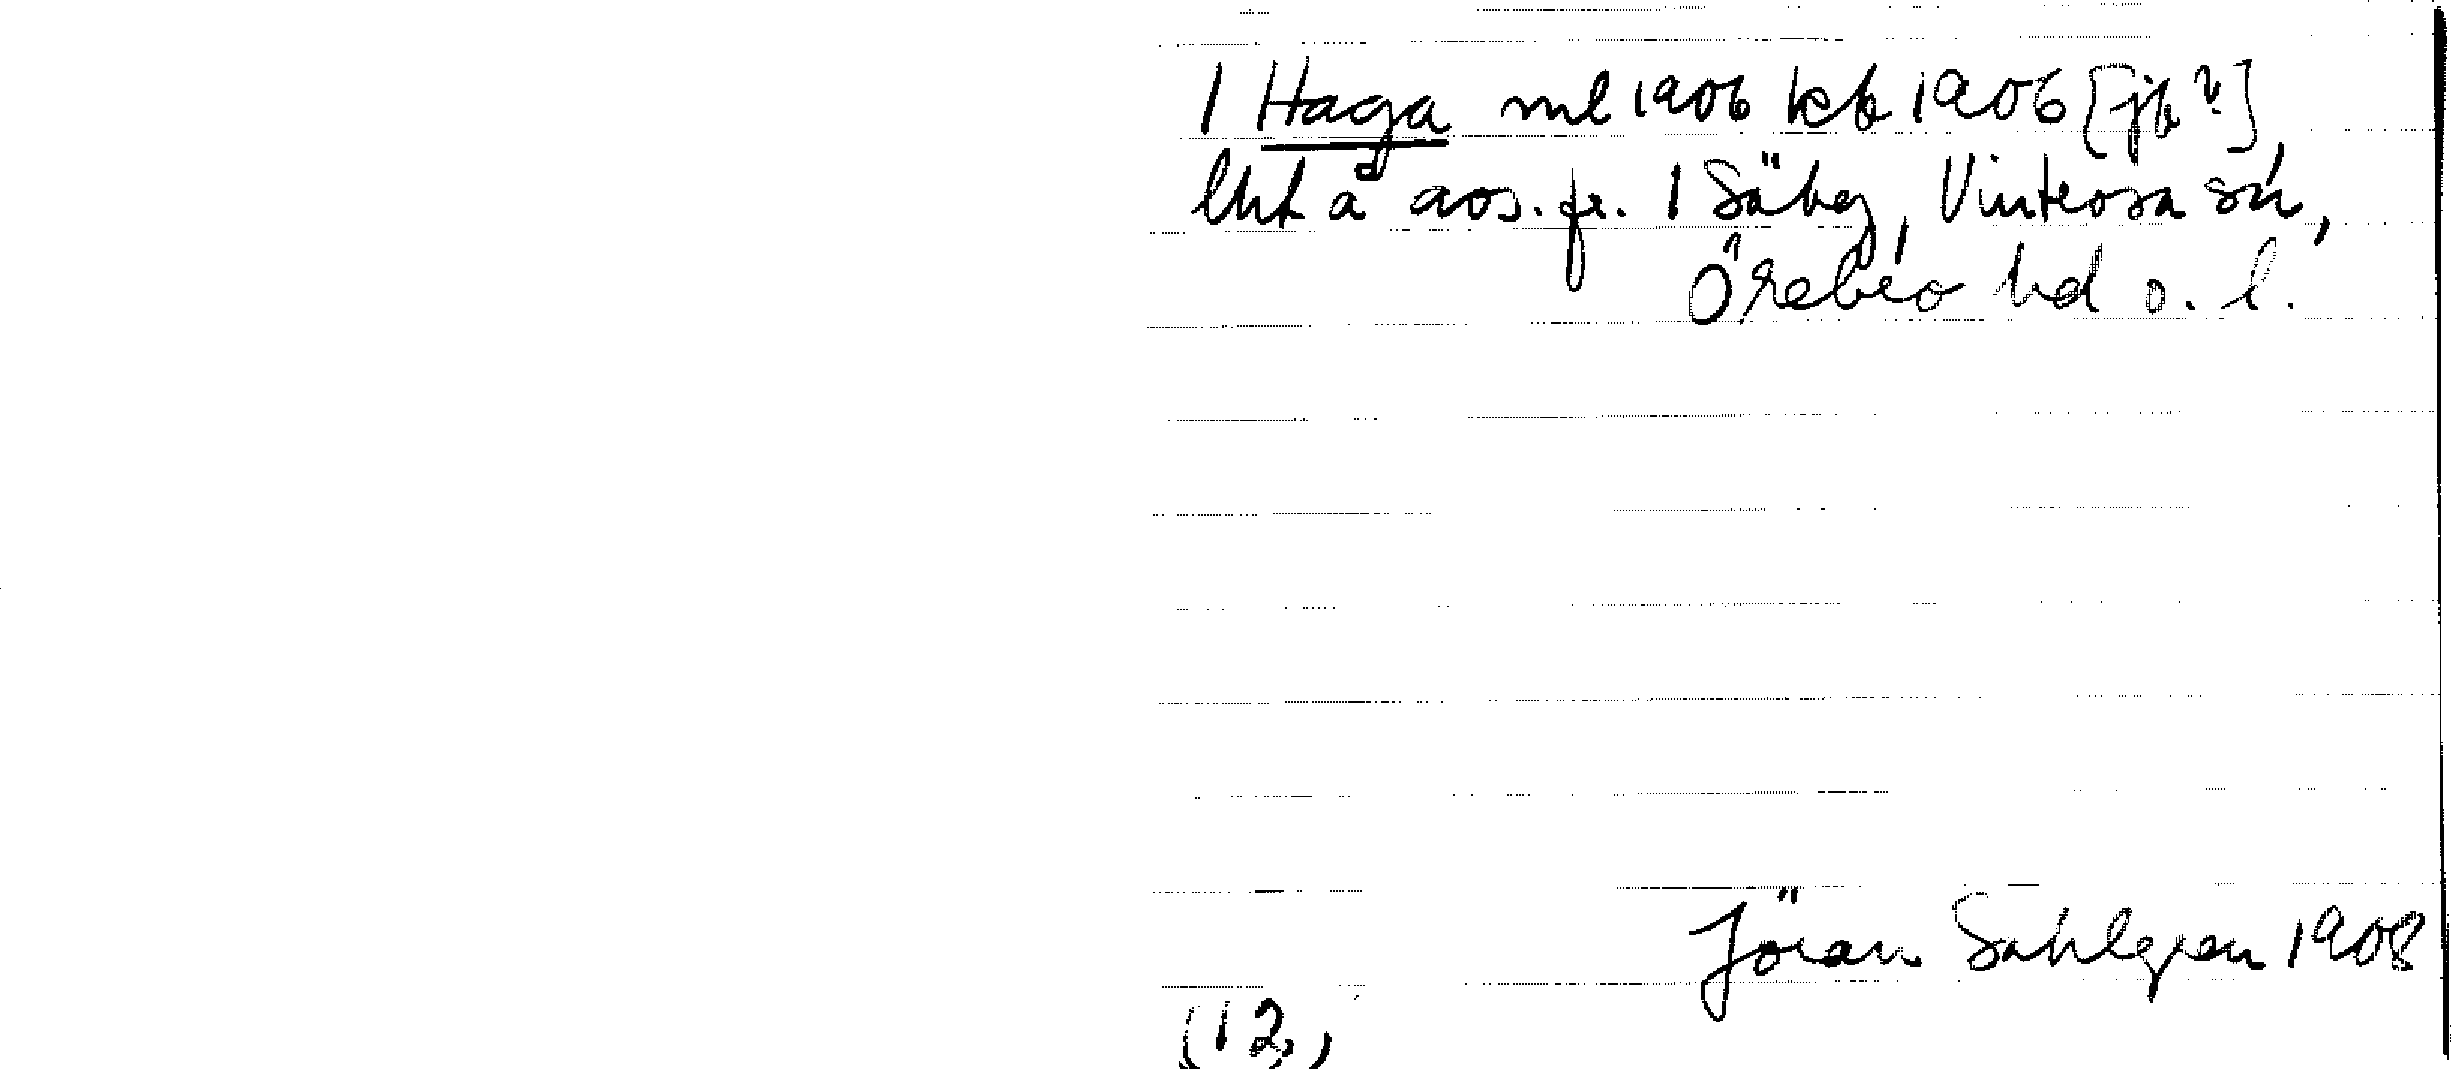 1 Haga ml 1906 kb 1906 [jb?],
lht å aos. fr. 1 Säby, Vintrosa sn,
Örebro hd o. l.
Jöran Sahlgren 1908
(12,)